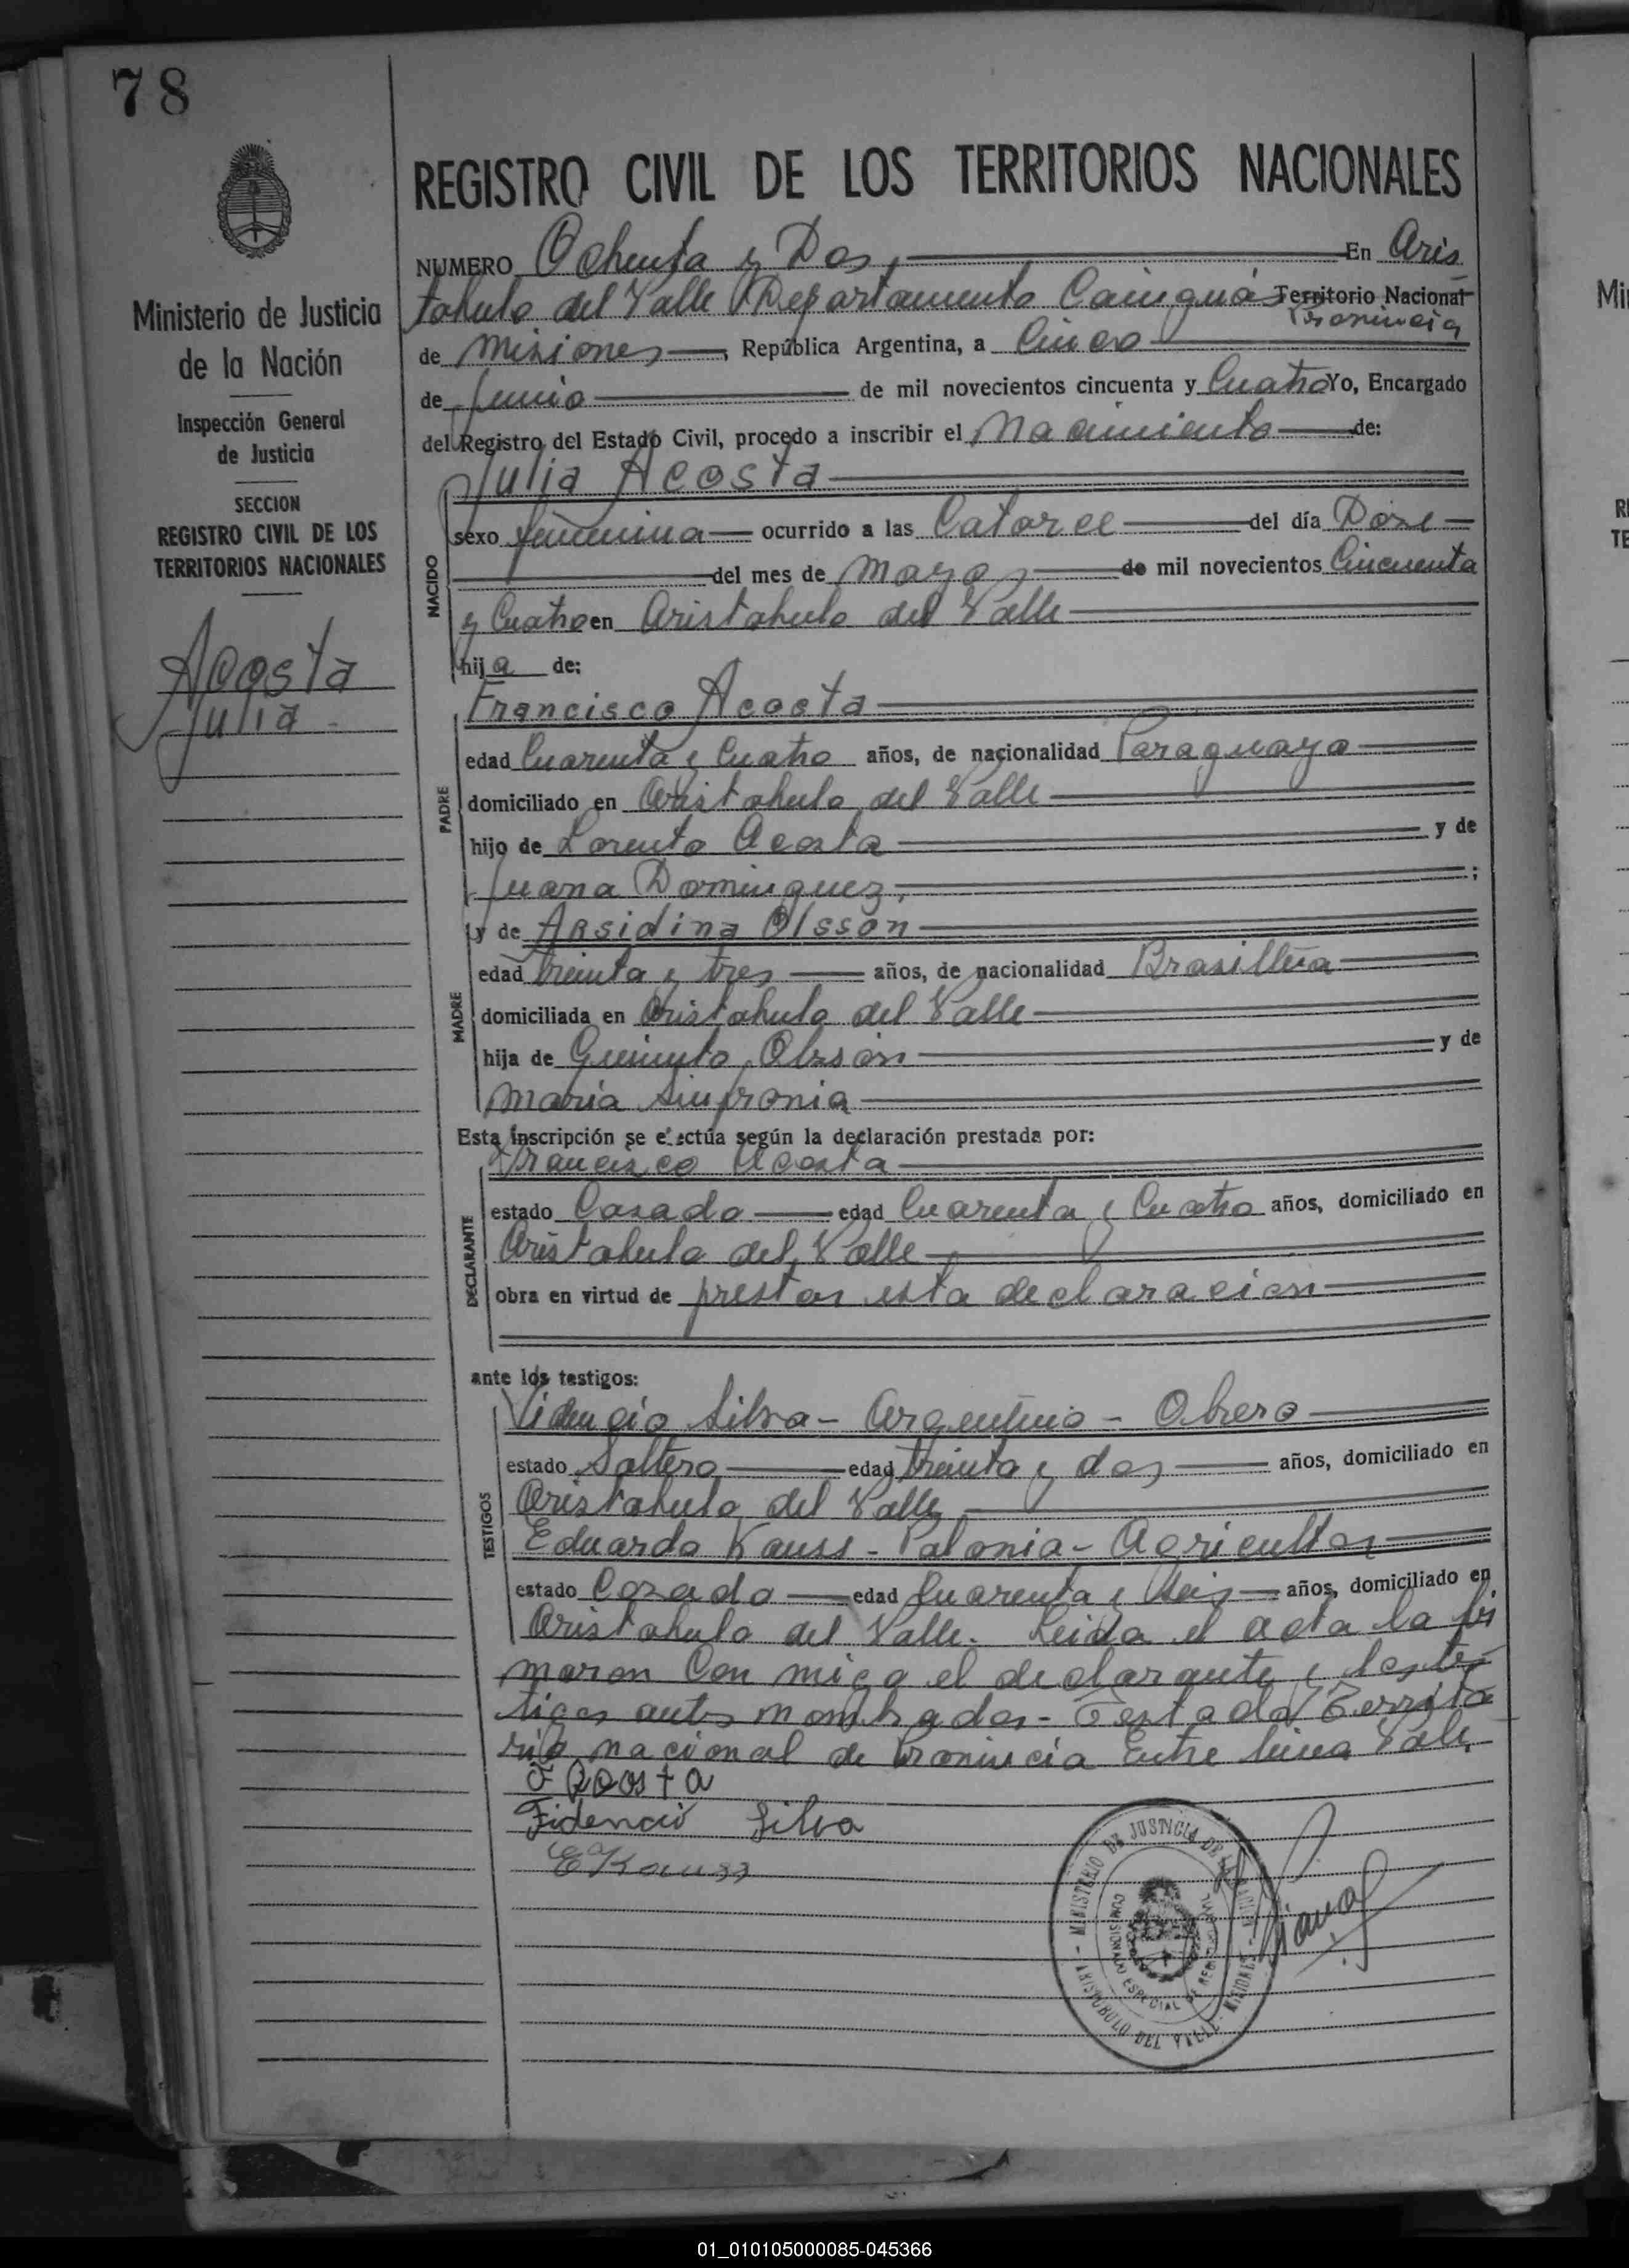 78
REGISTRO CIVIL DE LOS TERRITORIOS NACIONALES
NUMERO Ochenta y Dos, En Aris
tobulo del Valle Departamento Cainguás Territorio Nacional
Provincia
de Misiones, República Argentina, a Cinco
de Junio de mil novecientos cincuenta y Cuatro Yo, Encargado
del Registro del Estado Civil, procedo a inscribir el Nacimiento de:
Julia Acosta
NACIDO
sexo femenina ocurrido a las Catorce del día Doze
del mes de Mayo, de mil novecientos Cincuenta
y Cuatro en Aristobulo del Valle
hija de:
Francisco Acosta
PADRE
edad Cuarenta y Cuatro años, de nacionalidad Paraguayo
domiciliado en Aristobulo del Valle
hijo de Lorento Acosta y de
Juana Dominguez, ;
y de Arsidina Olsson
MADRE
edad treinta y tres años, de nacionalidad Brasilleña
domiciliada en Aristobulo del Valle
hija de Olsson y de
Maria Sinfronia
Esta inscripción se efectúa según la declaración prestada por:
Francisco Acosta
DECLARANTE
estado Casado edad Cuarenta y Cuatro años, domiciliado en
Aristobulo del Valle
obra en virtud de prestar esta declaracion
ante los testigos:
Videncio Silva - Argentino - Obrero
TESTIGOS
estado Soltero edad treinta y dos años, domiciliado en
Aristobulo del Valle
Eduardo Kauss - Polonia - Agricultor
estado Casado edad Cuarenta y Seis años, domiciliado en
Aristobulo del Valle. Leida el acta la fir
maron Con migo el declarante y los tes
tigos antes mombrados - Testado Territo
rio nacional de Provincia Entre linea Vale,
F Acosta
Fidencio Silva
E Kauss
MINISTERIO DE JUSTICIA DE LA NACION
COMISIONADO ESPECIAL DE REGISTRO CIVIL
ARISTOBULO DEL VALLE - MISIONES
Ministerio de Justicia
de la Nación
Inspección General
de Justicia
SECCION
REGISTRO CIVIL DE LOS
TERRITORIOS NACIONALES
Acosta
Julia
01_010105000085-045366